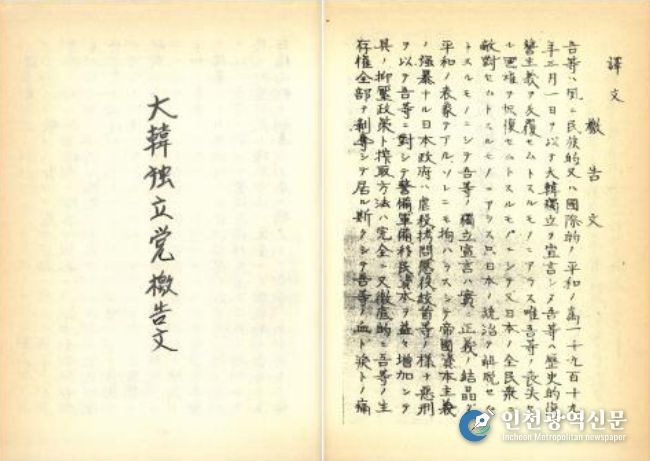 大韓独立党檄告文
譯文
檄告文
吾等ハ夙ニ民族的又ハ國際的ノ平和ノ為一千九百十九
年三月一日ヲ以テ大韓獨立ヲ宣言シ吾等ハ歴史的
讐主義ヲ反復セムトスルモノニアラス唯吾等ノ喪失
國權ヲ恢復セムトスルモノニシテ又日本ノ全民衆
敵對セムトスルモノニアラス只日本ノ統治ヲ離脱セム
トスルモノニシテ吾等ノ獨立宣言ハ實ニ正義ノ結晶
平和ノ表象テアルソレニモ拘ハラスシテ帝國資本主義
ノ强暴ナル日本政府ハ虐殺拷問懲役絞首等ノ様々惡刑
ヲ以テ吾等ニ對シテ警備軍備移民資本ヲ益々増加シテ
其ノ抑壓政策ト搾取方法ハ完全ニ又徹底的ニ吾等ノ生
存権全部ヲ剥奪シテ居ル斯クシテ吾等ノ血ト淚トノ痛
인천광역신문
Incheon Metropolitan newspaper